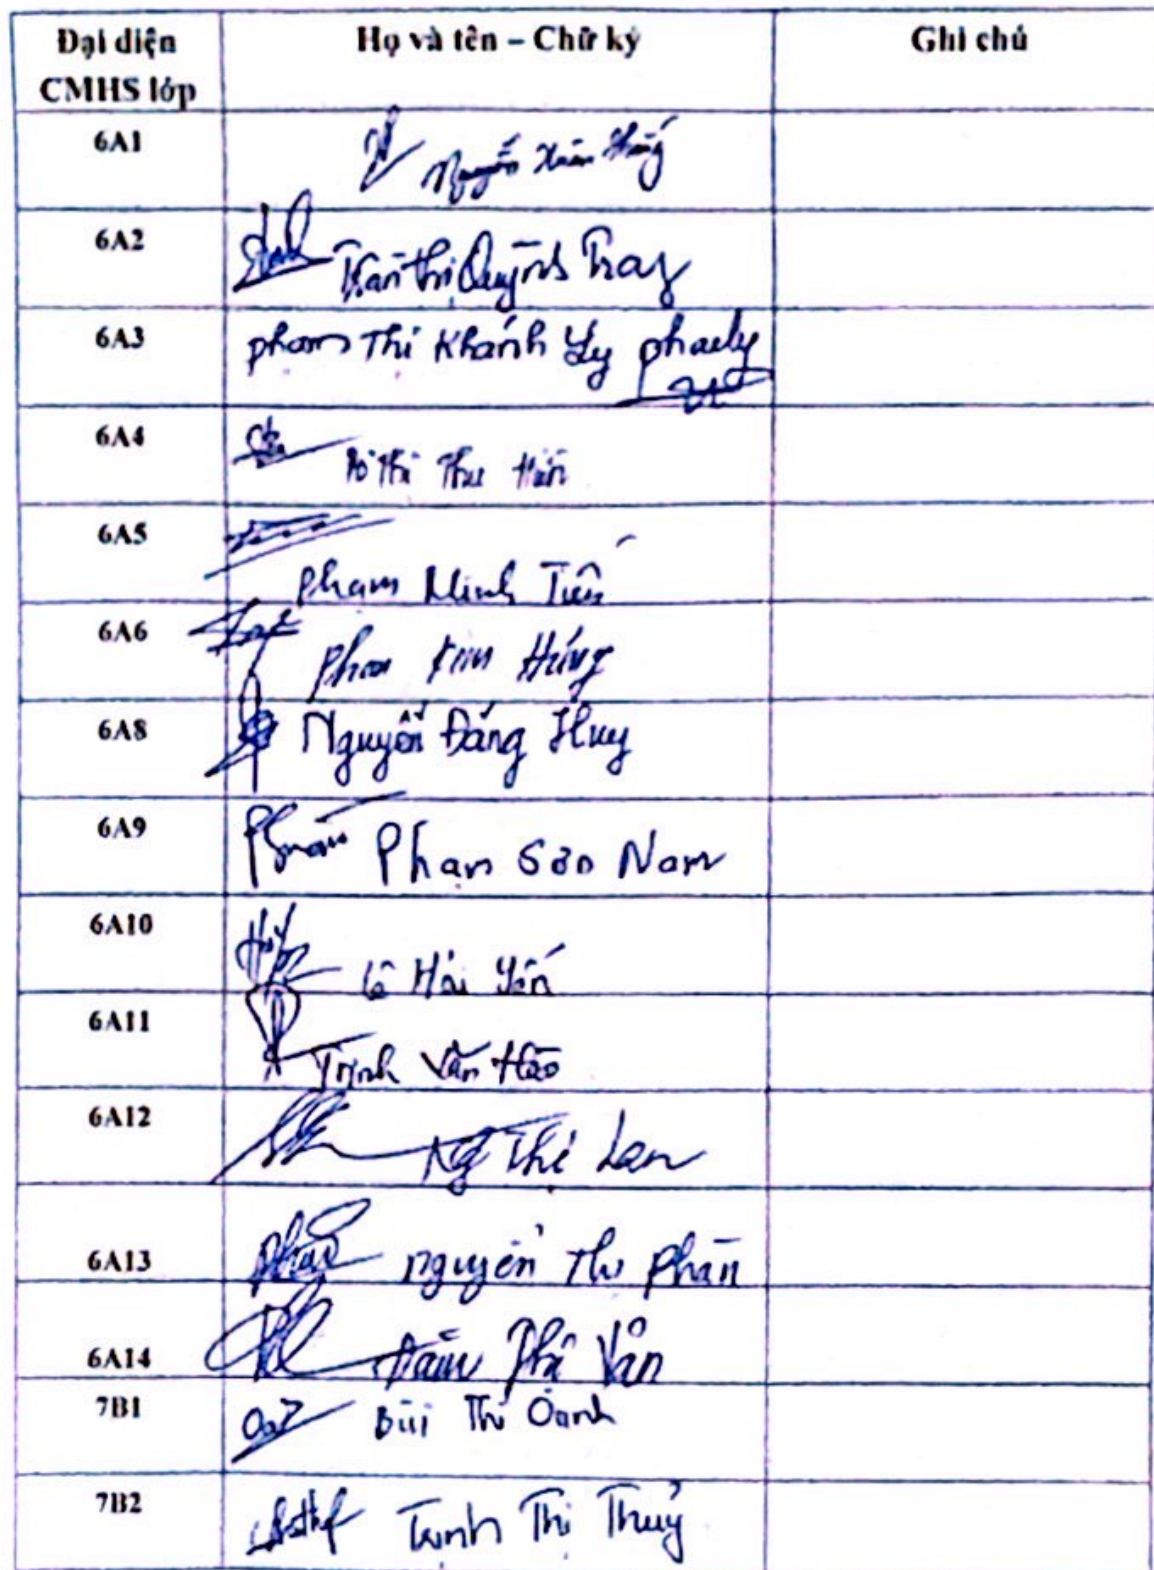 Đại diện CMHS lớp	Họ và tên – Chữ ký	Ghi chú
6A1 Nguyễn Xuân
6A2 Trần Thị Quỳnh Trang
6A3 Phạm Thị Khánh Ly phamly
6A4 Thị Thu Hiền
6A5 Phạm Minh Tiến
6A6 Phạm Kim Hưng
6A8 Nguyễn Đăng Huy
6A9 Phan Sơn Nam
6A10 Lê Hải Yến
6A11 Trịnh Văn Hào
6A12 Ng Thị Lan
6A13 Nguyễn Thu
6A14 Vân
7B1 Bùi Thị Oanh
7B2 Trịnh Thị Thuỷ